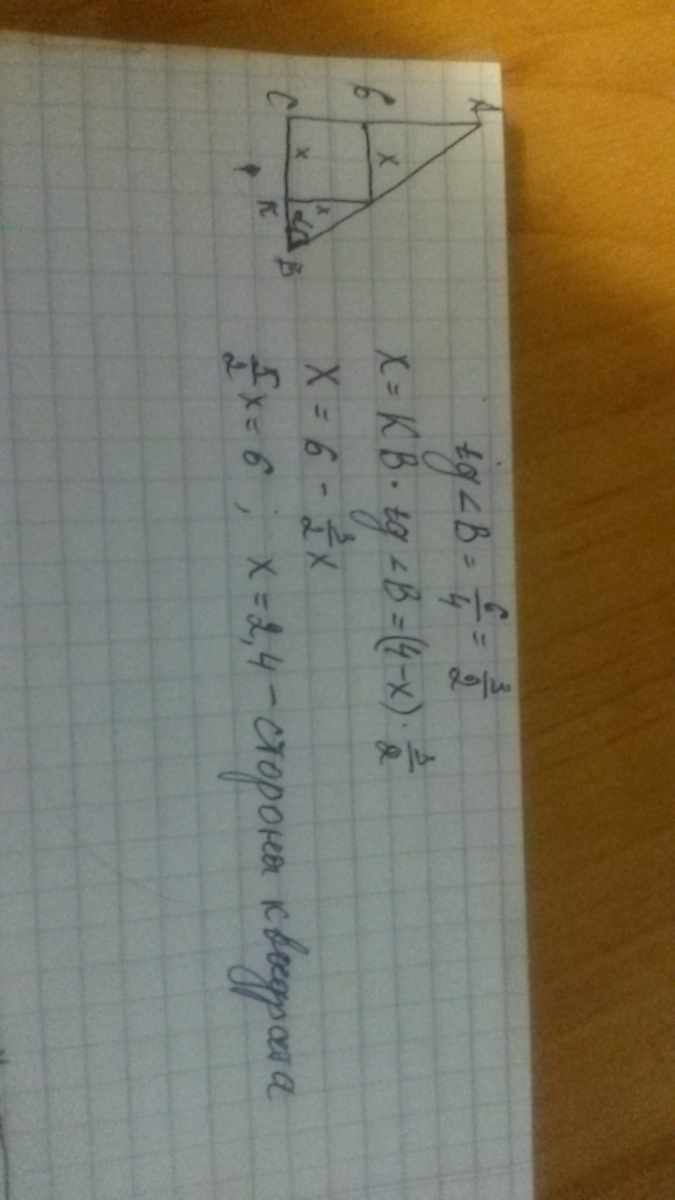 A
6
x
x
x
C
K
B
tg < B = 6/4 = 3/2
x = KB · tg < B = (4-x) · 3/2
x = 6 - 3/2 x
5/2 x = 6 ; x = 2,4 - сторона квадрата